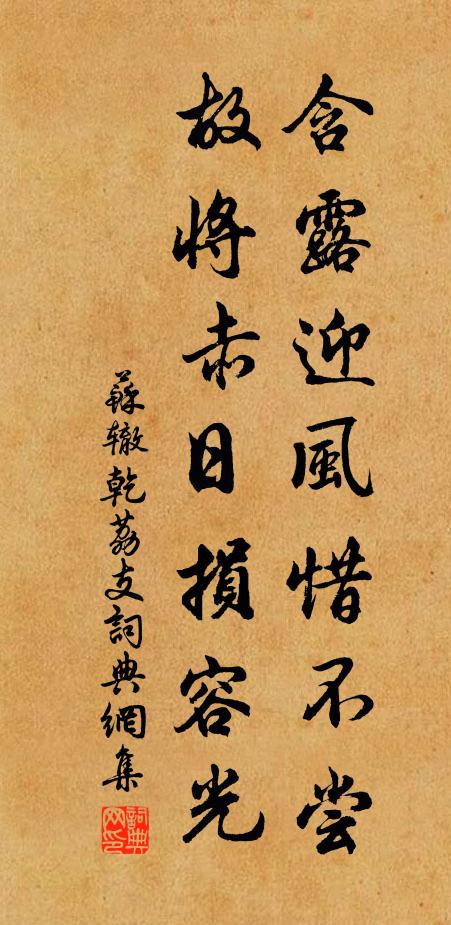 含露迎風惜不尝
故將赤日損容光
蘇辙乾荔支詞典網集
詞典
网印